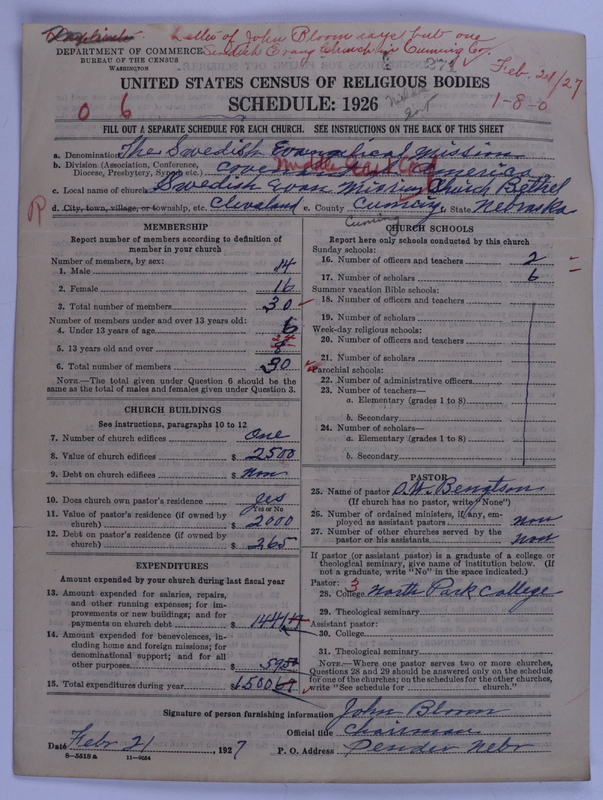 Letter of John Bloom says but one
Swedish Evang Church in Cuming Co.
DEPARTMENT OF COMMERCE
BUREAU OF THE CENSUS
WASHINGTON
271
Feb. 24/27
UNITED STATES CENSUS OF RELIGIOUS BODIES
SCHEDULE: 1926
0 6
1-8-0
FILL OUT A SEPARATE SCHEDULE FOR EACH CHURCH. SEE INSTRUCTIONS ON THE BACK OF THIS SHEET
a. Denomination The Swedish Evangelical Mission
b. Division (Association, Conference, Diocese, Presbytery, Synod, etc.) Covenant of America
c. Local name of church Swedish Evan Mission Church Bethel
d. City, town, village, or township, etc. Cleveland e. County Cuming f. State Nebraska
Cuming
MEMBERSHIP
Report number of members according to definition of
member in your church
Number of members, by sex:
1. Male 14
2. Female 16
3. Total number of members 30
Number of members under and over 13 years old:
4. Under 13 years of age 6
5. 13 years old and over
6. Total number of members 30
NOTE.—The total given under Question 6 should be
same as the total of males and females given under Question 3.
CHURCH BUILDINGS
See instructions, paragraphs 10 to 12
7. Number of church edifices One
8. Value of church edifices $ 2500
9. Debt on church edifices $ Non
10. Does church own pastor's residence yes
Yes or No
11. Value of pastor's residence (if owned by
church) $ 2000
12. Debt on pastor's residence (if owned by
church) $ 265
EXPENDITURES
Amount expended by your church during last fiscal year
13. Amount expended for salaries, repairs,
and other running expenses; for im-
provements or new buildings; and for
payments on church debt $
14. Amount expended for benevolences, in-
cluding home and foreign missions; for
denominational support; and for all
other purposes $
15. Total expenditures during year $
CHURCH SCHOOLS
Report here only schools conducted by this church
Sunday schools:
16. Number of officers and teachers 2
17. Number of scholars 6
Summer vacation Bible schools:
18. Number of officers and teachers
19. Number of scholars
Week-day religious schools:
20. Number of officers and teachers
21. Number of scholars
Parochial schools:
22. Number of administrative officers
23. Number of teachers—
a. Elementary (grades 1 to 8)
b. Secondary
24. Number of scholars—
a. Elementary (grades 1 to 8)
b. Secondary
PASTOR
25. Name of pastor O. W. Bengtson
(If church has no pastor, write "None")
26. Number of ordained ministers, if any, em-
ployed as assistant pastors non
27. Number of other churches served by the
pastor or his assistants non
If pastor (or assistant pastor) is a graduate of a college or
theological seminary, give name of institution below. (If
not a graduate, write "No" in the space indicated.)
Pastor: 3
28. College North Park College
29. Theological seminary
Assistant pastor:
30. College
31. Theological seminary
NOTE.—Where one pastor serves two or more churches,
Questions 28 and 29 should be answered only on the schedule
for one of the churches; on the schedules for the other churches,
write "See schedule for church."
Signature of person furnishing information John Bloom
Official title Chairman
Date Febr 21, 1927 P. O. Address Pender Nebr
8-5518a 11-9054